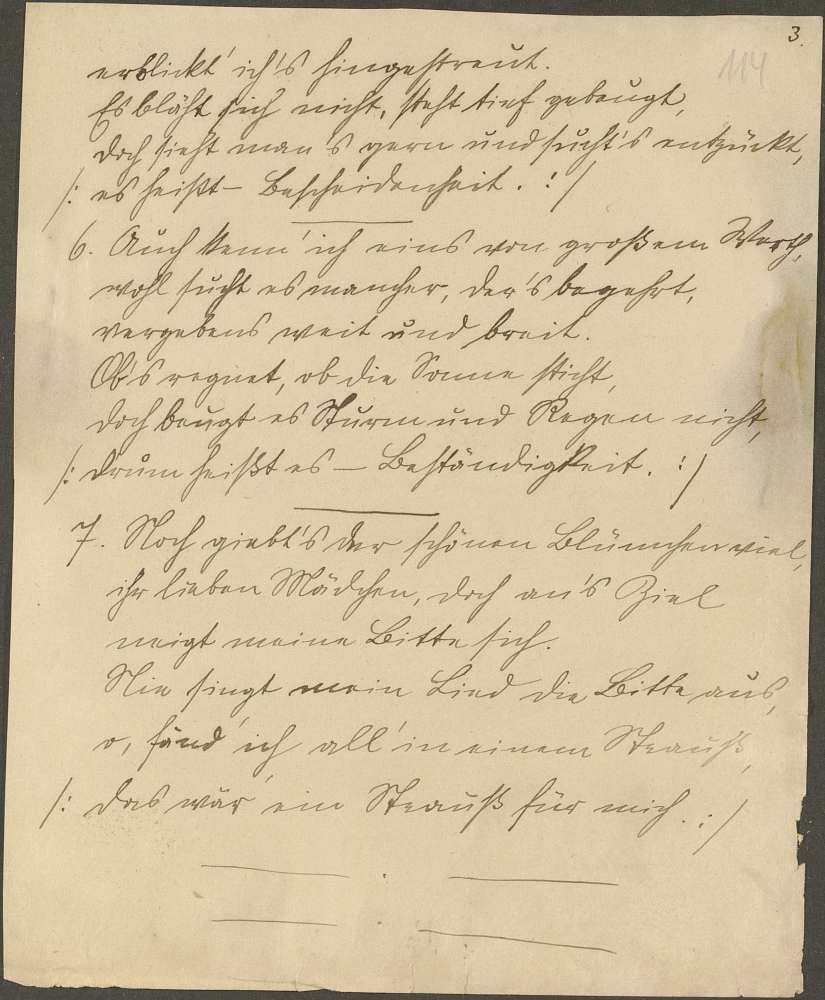 3.
114
erblickt' ich's hingestreut.
Es bläht sich nicht, steht tief gebeugt,
doch sieht man's gern und sucht's entzückt,
/: es heißt – Bescheidenheit. :/
6. Auch kenn' ich eins von großem Werth,
wohl sucht es mancher, der's begehrt,
vergebens weit und breit.
Ob's regnet, ob die Sonne sticht,
doch beugt es Sturm und Regen nicht,
/: drum heißt es – Beständigkeit. :/
7. Noch giebt's der schönen Blümchen viel,
ihr lieben Mädchen, doch an's Ziel
neigt meine Bitte sich.
Nie singt mein Lied die Bitte aus,
o, fänd' ich all' in einem Strauß,
/: das wär' ein Strauß für mich. :/